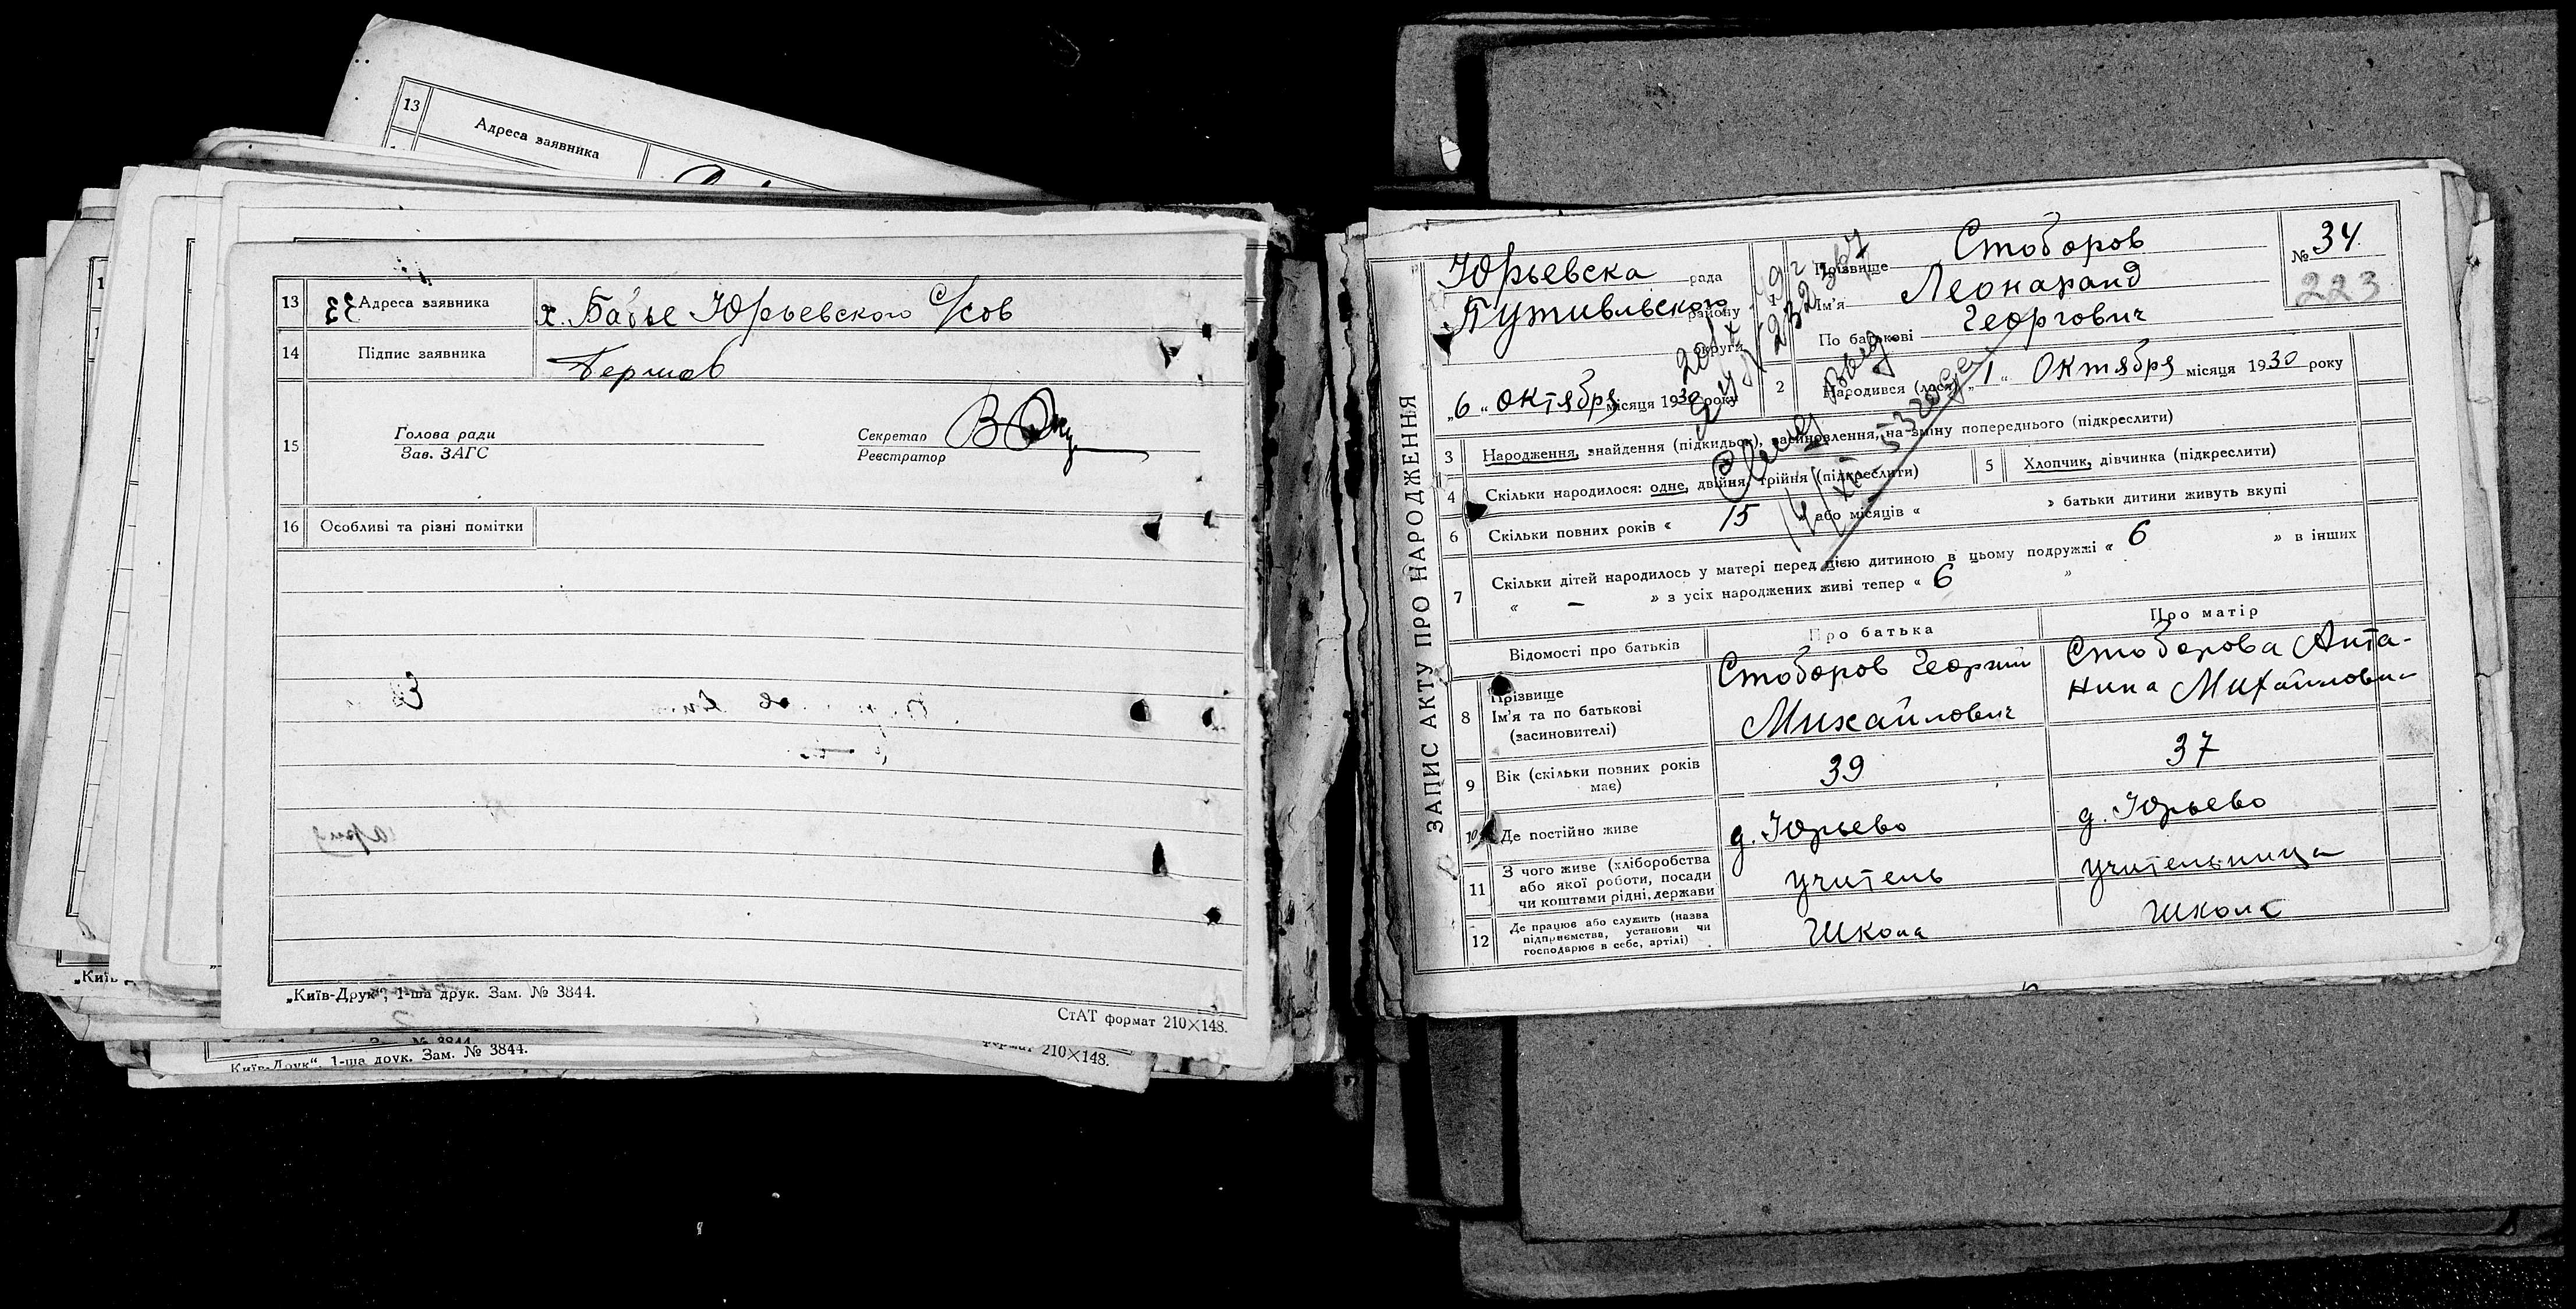 13
Адреса заявника
13 Адреса заявника х. Бабье Юрьевского с/сов
14 Підпис заявника
15 Голова ради
Зав. ЗАГС
Секретар
Реєстратор
16 Особливі та різні помітки
„Київ-Друк“, 1-ша друк. Зам. № 3844.
СтАТ формат 210×148.
Київ-Друк“, 1-ша друк. Зам. № 3844.
210×148.
ЗАПИС АКТУ ПРО НАРОДЖЕННЯ
Юрьевска рада
Путивльского району
округи
„6“ октября місяця 1930 року
1 Прізвище Стоборов
Ім'я Леонаранд
По батькові Георгович
№ 34
223
2 Народився (лося) „1“ Октября місяця 1930 року
3 Народження, знайдення (підкидьок), засиновлення, на зміну попереднього (підкреслити)
4 Скільки народилося: одне, двійня, трійня (підкреслити)
5 Хлопчик, дівчинка (підкреслити)
6 Скільки повних років « 15 » або місяців « » батьки дитини живуть вкупі
7 Скільки дітей народилось у матері перед цією дитиною в цьому подружжі « 6 » в інших
« – » з усіх народжених живі тепер « 6 »
Відомості про батьків Про батька Про матір
8 Прізвище
Ім'я та по батькові
(засиновителі)
Стоборов Георгий
Михайлович
Стоборова Анта-
нина Михайловна
9 Вік (скільки повних років
має)
39 37
10 Де постійно живе д. Юрьево д. Юрьево
11 З чого живе (хліборобства
або якої роботи, посади
чи коштами рідні, держави
учитель учительница
12 Де працює або служить (назва
підприємства, установи чи
господарює в себе, артілі)
Школа Школа